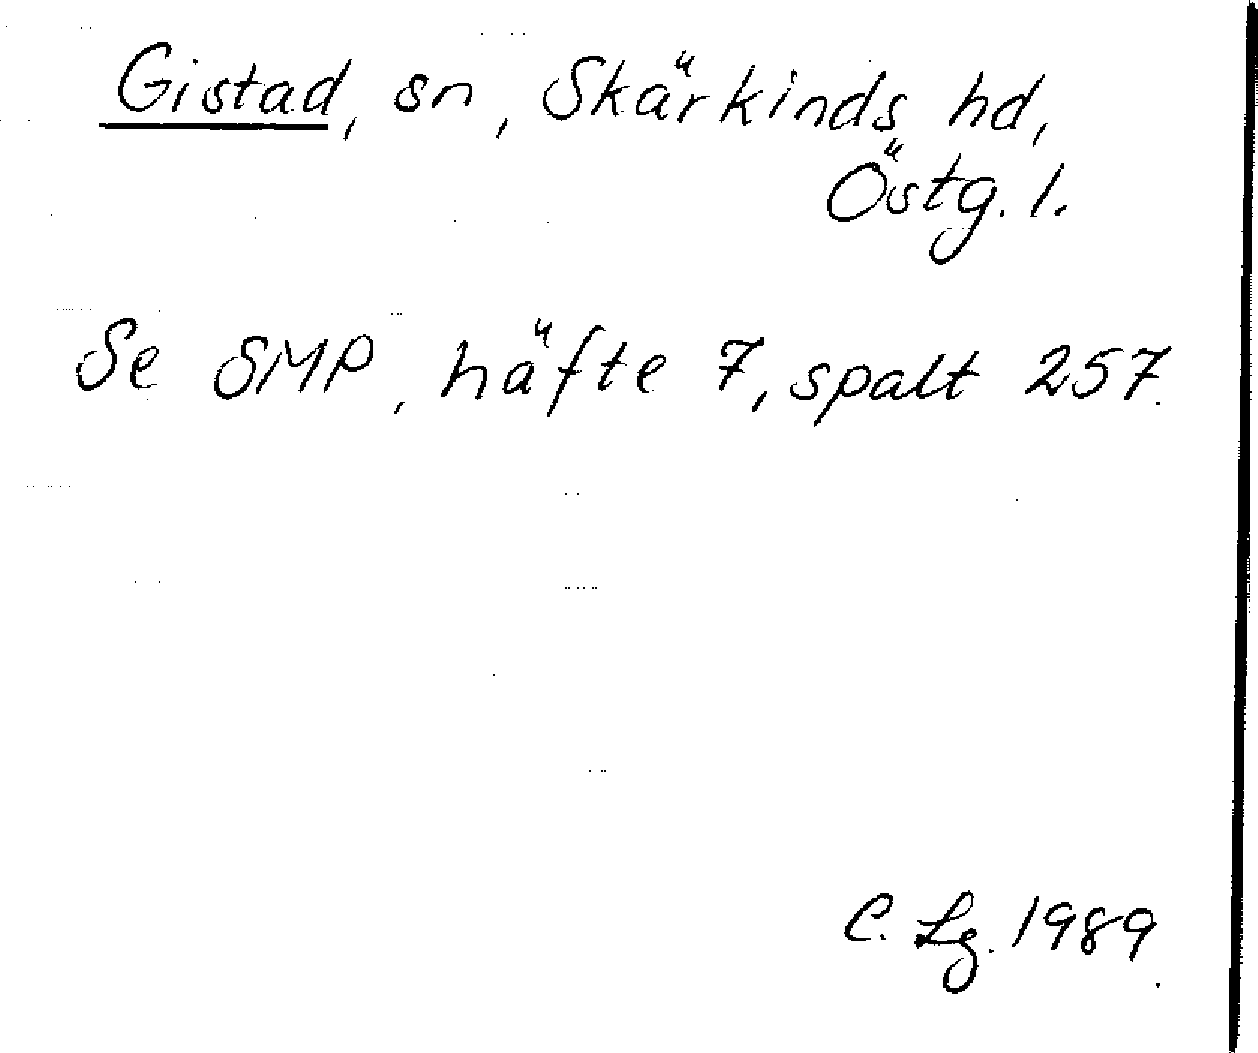 Gistad, sn, Skärkinds hd,
Östg. l.
Se SMP, häfte 7, spalt 257.
C. Lg. 1989.